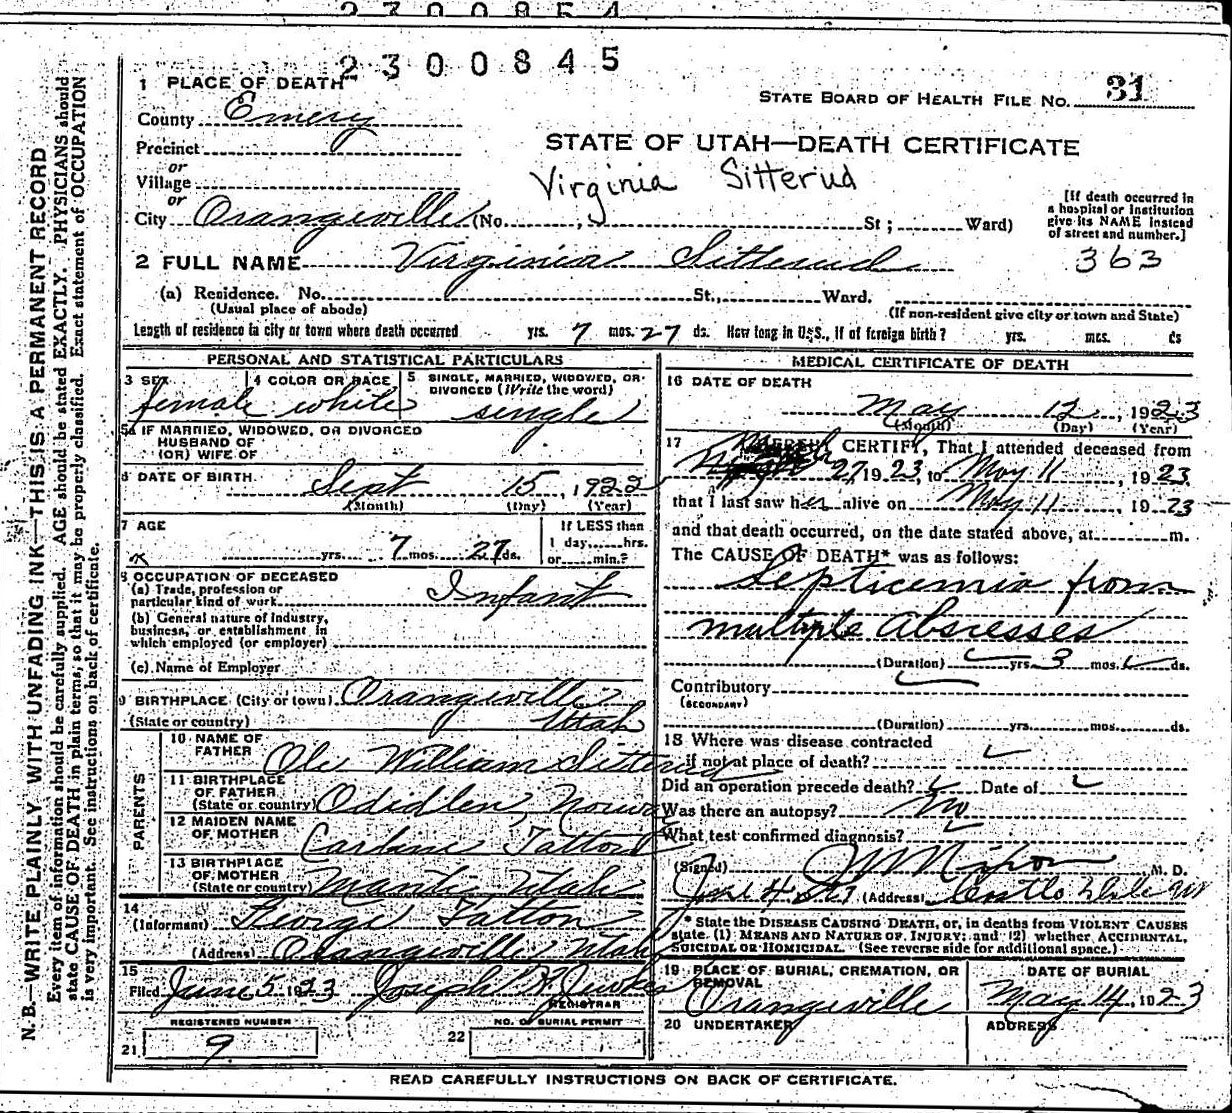 2300854
2300845
1 PLACE OF DEATH
STATE BOARD OF HEALTH FILE NO. 31
County Emery
STATE OF UTAH—DEATH CERTIFICATE
Precinct
or
Village
Virginia Sitterud
or
City Orangeville (No. , St ; Ward)
[If death occurred in a hospital or institution give its NAME instead of street and number.]
2 FULL NAME Virginia Sitterud
363
(a) Residence. No. St., Ward.
(Usual place of abode)
(If non-resident give city or town and State)
Length of residence in city or town where death occurred yrs. 7 mos. 27 ds. How long in U.S., if of foreign birth? yrs. mos. ds
PERSONAL AND STATISTICAL PARTICULARS
3 SEX 4 COLOR OR RACE 5 SINGLE, MARRIED, WIDOWED, OR DIVORCED (Write the word)
female white single
5a IF MARRIED, WIDOWED, OR DIVORCED
HUSBAND OF
(OR) WIFE OF
6 DATE OF BIRTH Sept 15, 1922
(Month) (Day) (Year)
7 AGE
If LESS than
1 day, hrs.
yrs. 7 mos. 27 ds. or min.?
8 OCCUPATION OF DECEASED
(a) Trade, profession or
particular kind of work Infant
(b) General nature of industry,
business, or establishment in
which employed (or employer)
(c) Name of Employer
9 BIRTHPLACE (City or town) Orangeville
(State or country) Utah
PARENTS
10 NAME OF
FATHER Ole William Sitterud
11 BIRTHPLACE
OF FATHER
(State or country) Norway
12 MAIDEN NAME
OF MOTHER
13 BIRTHPLACE
OF MOTHER
(State or country) Manti Utah
14
(Informant) George
(Address) Orangeville Utah
15
Filed June 5 1923 Joseph
REGISTRAR
REGISTERED NUMBER NO. OF BURIAL PERMIT
21 9 22
MEDICAL CERTIFICATE OF DEATH
16 DATE OF DEATH
May 12, 1923
(Month) (Day) (Year)
17 HEREBY CERTIFY, That I attended deceased from
27, 1923, to May 11, 1923
that I last saw her alive on May 11, 1923
and that death occurred, on the date stated above, at m.
The CAUSE OF DEATH* was as follows:
Septicemia from
multiple Abscesses
(Duration) yrs. 3 mos. ds.
Contributory
(SECONDARY)
(Duration) yrs. mos. ds.
18 Where was disease contracted
if not at place of death?
Did an operation precede death? Date of
Was there an autopsy? No
What test confirmed diagnosis?
(Signed) M. D.
(Address)
* State the DISEASE CAUSING DEATH, or, in deaths from VIOLENT CAUSES
state (1) MEANS AND NATURE OF INJURY; and (2) whether ACCIDENTAL,
SUICIDAL OR HOMICIDAL. (See reverse side for additional space.)
19 PLACE OF BURIAL, CREMATION, OR REMOVAL DATE OF BURIAL
Orangeville May 14, 1923
20 UNDERTAKER ADDRESS
READ CAREFULLY INSTRUCTIONS ON BACK OF CERTIFICATE.
N. B.—WRITE PLAINLY WITH UNFADING INK—THIS IS A PERMANENT RECORD
Every item of information should be carefully supplied. AGE should be stated EXACTLY. PHYSICIANS should
state CAUSE OF DEATH in plain terms, so that it may be properly classified. Exact statement of OCCUPATION
is very important. See instructions on back of certificate.